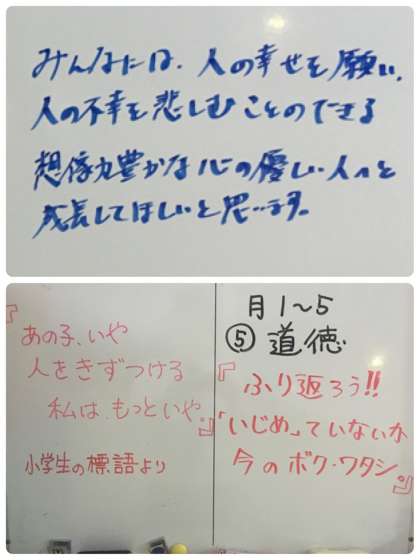 みんなには、人の幸せを願い、
人の不幸を悲しむことのできる
想像力豊かな心の優しい人へと
成長してほしいと思います。
『あの子、いや
人をきずつける
私は、もっといや。』
小学生の標語より
月1~5
⑤道徳
『ふり返ろう!!
「いじめ」ていないか
今のボク・ワタシ。』